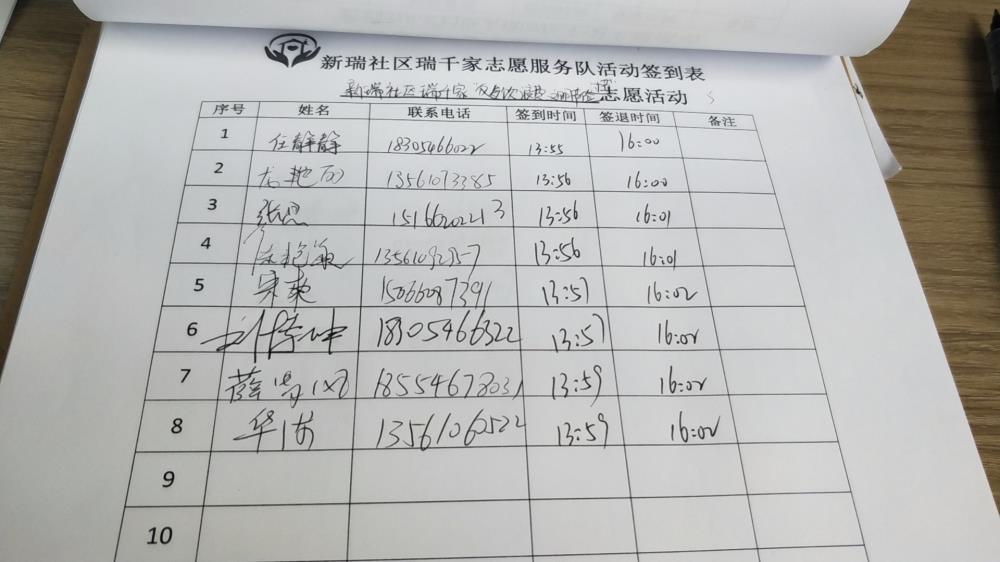 新瑞社区瑞千家志愿服务队活动签到表
新瑞社区瑞千家 志愿活动
序号 姓名 联系电话 签到时间 签退时间 备注
1 任静静 18305466022 13:55 16:00
2 13561073385 13:56 16:00
3 张恩 15166202213 13:56 16:01
4 13561092957 13:56 16:01
5 宋爽 15066087391 13:57 16:02
6 18305466322 13:57 16:02
7 18554678031 13:59 16:02
8 华 13561060522 13:59 16:02
9
10